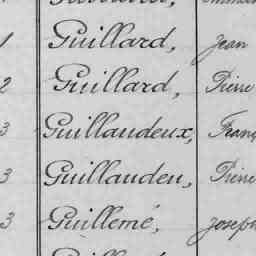 1 Guillard, Jean
2 Guillard, Pierre
3 Guillaudeux, Franç
3 Guillauden, Pierre
3 Guillemé, Joseph